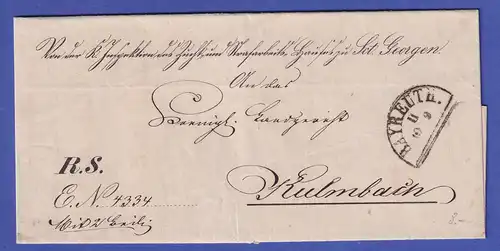 Von der K. Inspektion des Zucht und Strafarbeits Hauses zu Sct. Georgen
An das
Koenigl. Landgericht
BAYREUTH.
11
9
R.S.
E. N. 4334
Kulmbach
Mit 2 Beil.
8.-